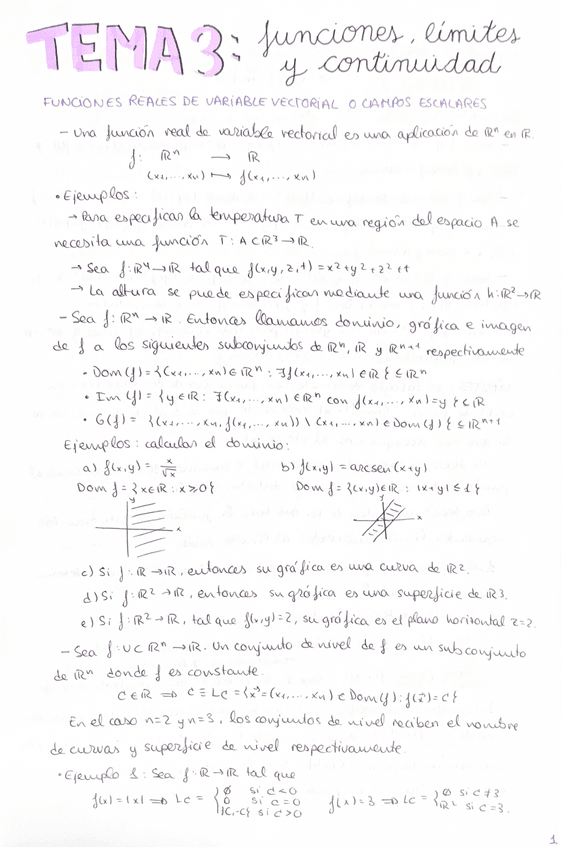 TEMA 3: funciones, límites
y continuidad
FUNCIONES REALES DE VARIABLE VECTORIAL O CAMPOS ESCALARES
- Una función real de variable vectorial es una aplicación de ℝⁿ en ℝ.
f: ℝⁿ → ℝ
(x₁,..., xₙ) ↦ f(x₁,..., xₙ)
• Ejemplos:
→ Para especificar la temperatura T en una región del espacio A se
necesita una función T: A⊂ℝ³→ℝ.
→ Sea f:ℝ⁴→ℝ tal que f(x,y,z,t)=x²+y²+z²+t
→ La altura se puede especificar mediante una función h:ℝ²→ℝ
- Sea f:ℝⁿ→ℝ. Entonces llamamos dominio, gráfica e imagen
de f a los siguientes subconjuntos de ℝⁿ, ℝ y ℝⁿ⁺¹ respectivamente
• Dom(f)={(x₁,..., xₙ)∈ℝⁿ: ∃f(x₁,..., xₙ)∈ℝ} ⊆ℝⁿ
• Im(f)={y∈ℝ: ∃(x₁,..., xₙ)∈ℝⁿ con f(x₁,..., xₙ)=y} ⊆ℝ
• G(f)= {(x₁,..., xₙ, f(x₁,..., xₙ)) \ (x₁,..., xₙ)∈Dom(f)} ⊆ℝⁿ⁺¹
Ejemplos: calcular el dominio:
a) f(x,y)= x/√x b) f(x,y)=arcsen(x+y)
Dom f={x∈ℝ: x≥0} Dom f={(x,y)∈ℝ: |x+y|≤1}
y x y x
c) Si f:ℝ→ℝ, entonces su gráfica es una curva de ℝ².
d) Si f:ℝ²→ℝ, entonces su gráfica es una superficie de ℝ³.
e) Si f:ℝ²→ℝ, tal que f(x,y)=2, su gráfica es el plano horizontal z=2.
- Sea f:U⊂ℝⁿ→ℝ. Un conjunto de nivel de f es un subconjunto
de ℝⁿ donde f es constante.
C∈ℝ ⇒ C≡Lc={x⃗=(x₁,..., xₙ)∈Dom(f): f(x⃗)=C}
En el caso n=2 y n=3, los conjuntos de nivel reciben el nombre
de curvas y superficie de nivel respectivamente.
• Ejemplo 1: Sea f:ℝ→ℝ tal que
f(x)=|x| ⇒ Lc = {∅ si C<0 f(x)=3 ⇒ Lc= {∅ si C≠3
0 si C=0 ℝ² si C=3.
{C,-C} si C>0
1